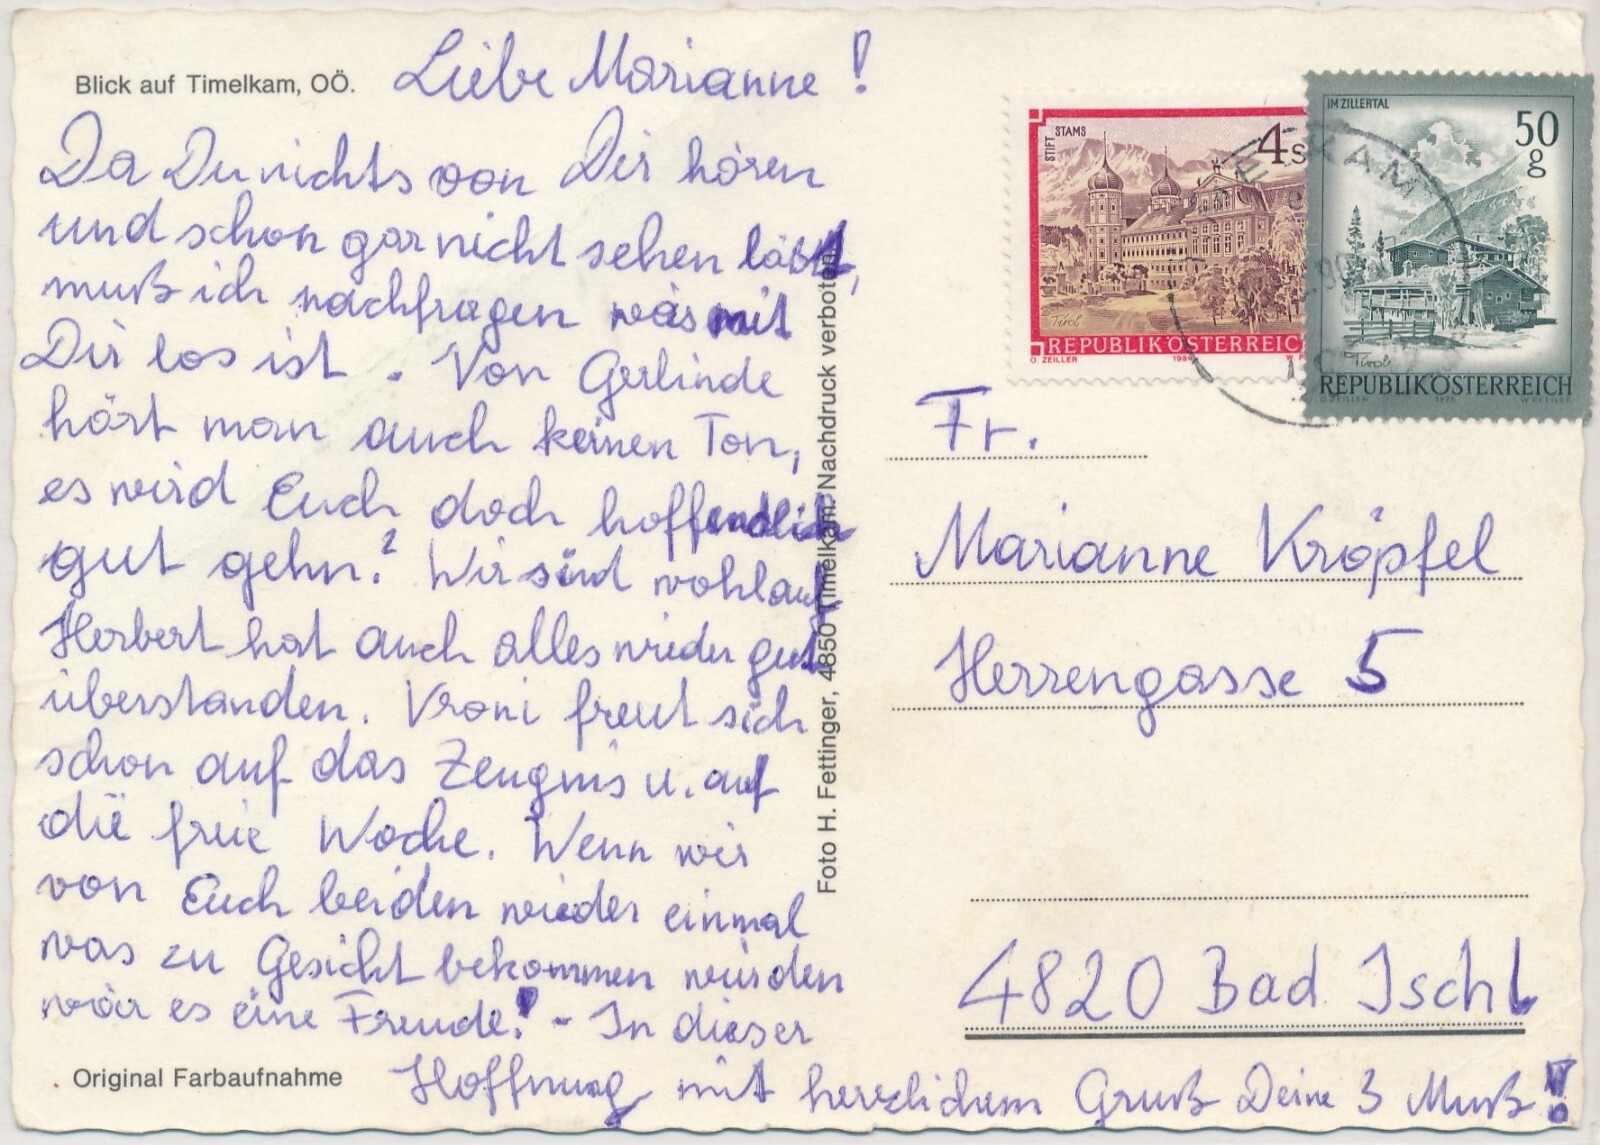 Blick auf Timelkam, OÖ.
Liebe Marianne!
Da Du nichts von Dir hören
und schon gar nicht sehen läßt,
muß ich nachfragen was mit
Dir los ist. Von Gerlinde
hört man auch keinen Ton,
es wird Euch doch hoffendlich
gut gehn? Wir sind wohlauf
Herbert hat auch alles wieder gut
überstanden. Vroni freut sich
schon auf das Zeugnis u. auf
die freie Woche. Wenn wir
von Euch beiden wieder einmal
was zu Gesicht bekommen würden
wär es eine Freude! - In dieser
Hoffnung mit herzlichem Gruß Deine 3 Muß!
Original Farbaufnahme
Foto H. Fettinger, 4850 Timelkam. Nachdruck verboten
STIFT STAMS
4 S
Tirol
REPUBLIK ÖSTERREIC
O. ZEILLER 1984
IM ZILLERTAL
50 g
Tirol
REPUBLIK ÖSTERREICH
O. ZEILLER 1975 W. PFEILER
Fr.
Marianne Kröpfel
Herrengasse 5
4820 Bad Ischl